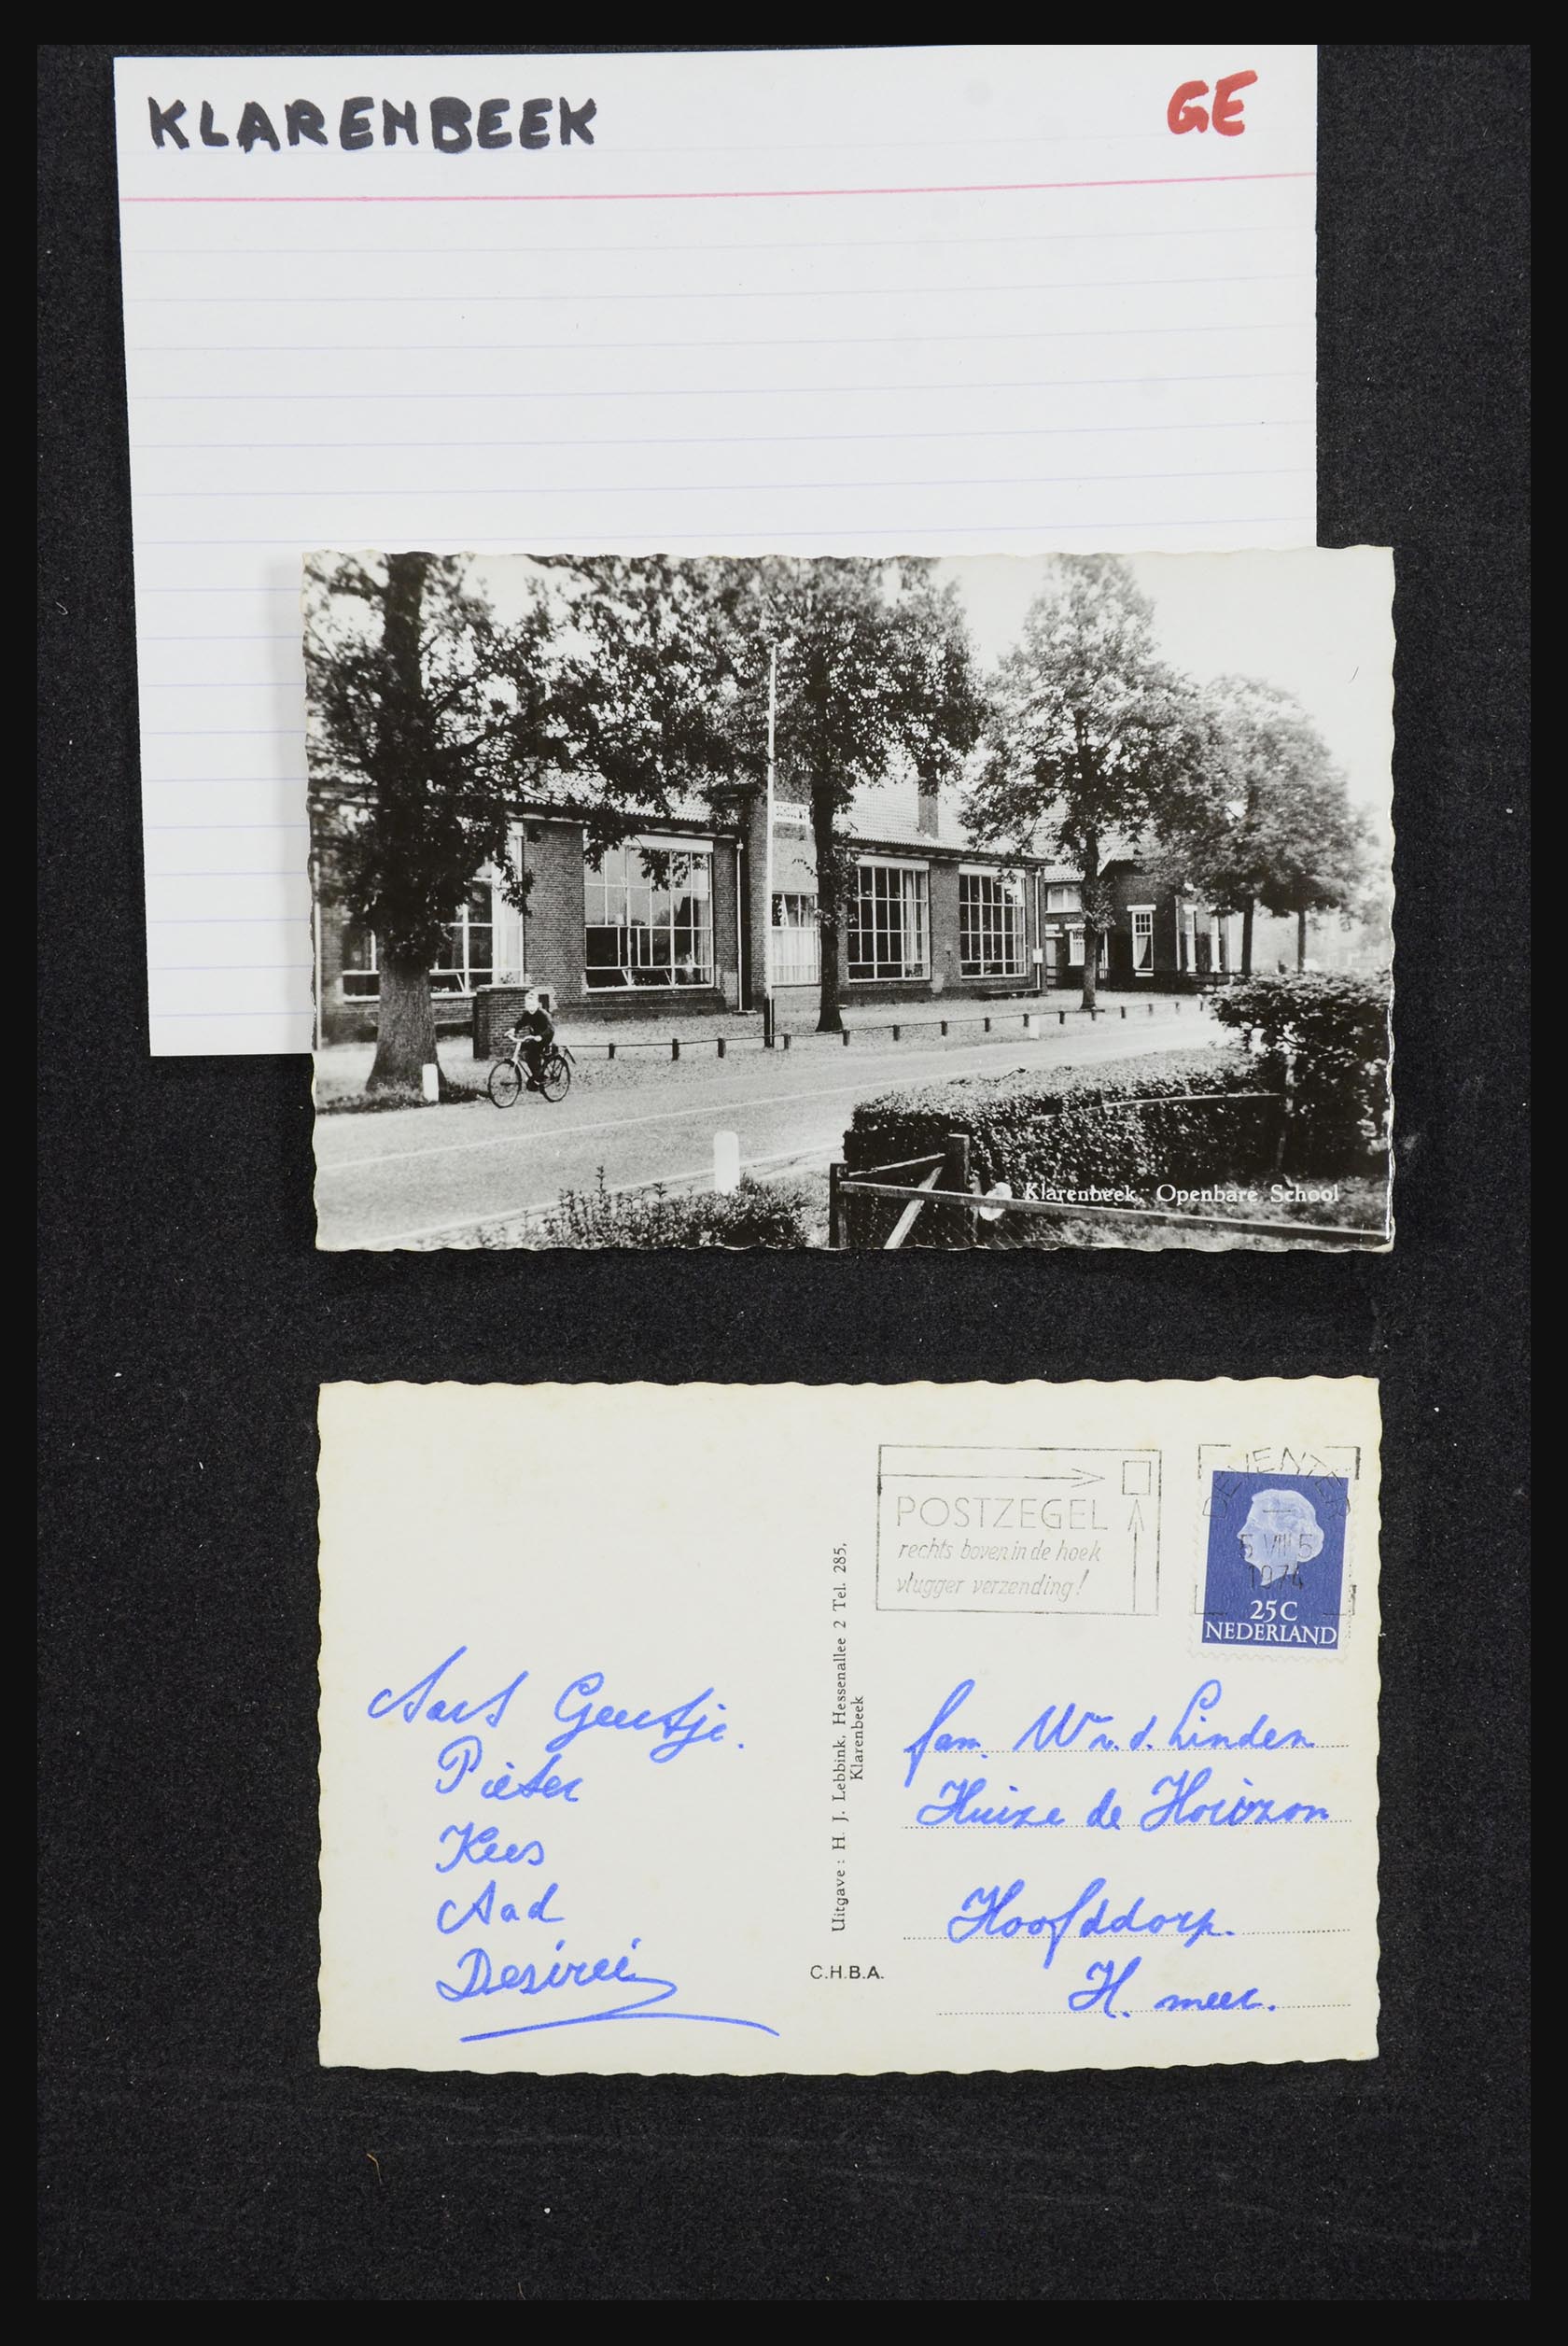 KLARENBEEK GE
Klarenbeek, Openbare School
DEVENTER
5 VIII 5
1974
POSTZEGEL
rechts boven in de hoek
vlugger verzending!
25C
NEDERLAND
Uitgave : H. J. Lebbink, Hessenallee 2 Tel. 285,
Klarenbeek
C.H.B.A.
Aart Geertje.
Pieter
Kees
Aad
Desireé
fam. W v. d. Linden
Huize de Horizon
Hoofddorp.
H. meer.